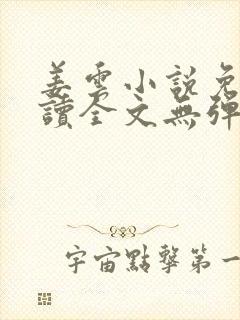 姜雲小說免
讀全文無彈
宇宙點擊第一